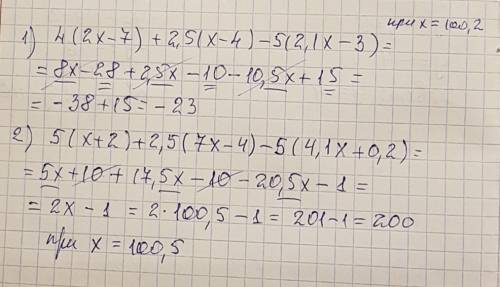 при x = 100,2
1) 4(2x-7) + 2,5(x-4) - 5(2,1x-3) =
= 8x - 28 + 2,5x - 10 - 10,5x + 15 =
= -38 + 15 = -23
2) 5(x+2) + 2,5(7x-4) - 5(4,1x+0,2) =
= 5x + 10 + 17,5x - 10 - 20,5x - 1 =
= 2x - 1 = 2·100,5 - 1 = 201 - 1 = 200
при x = 100,5